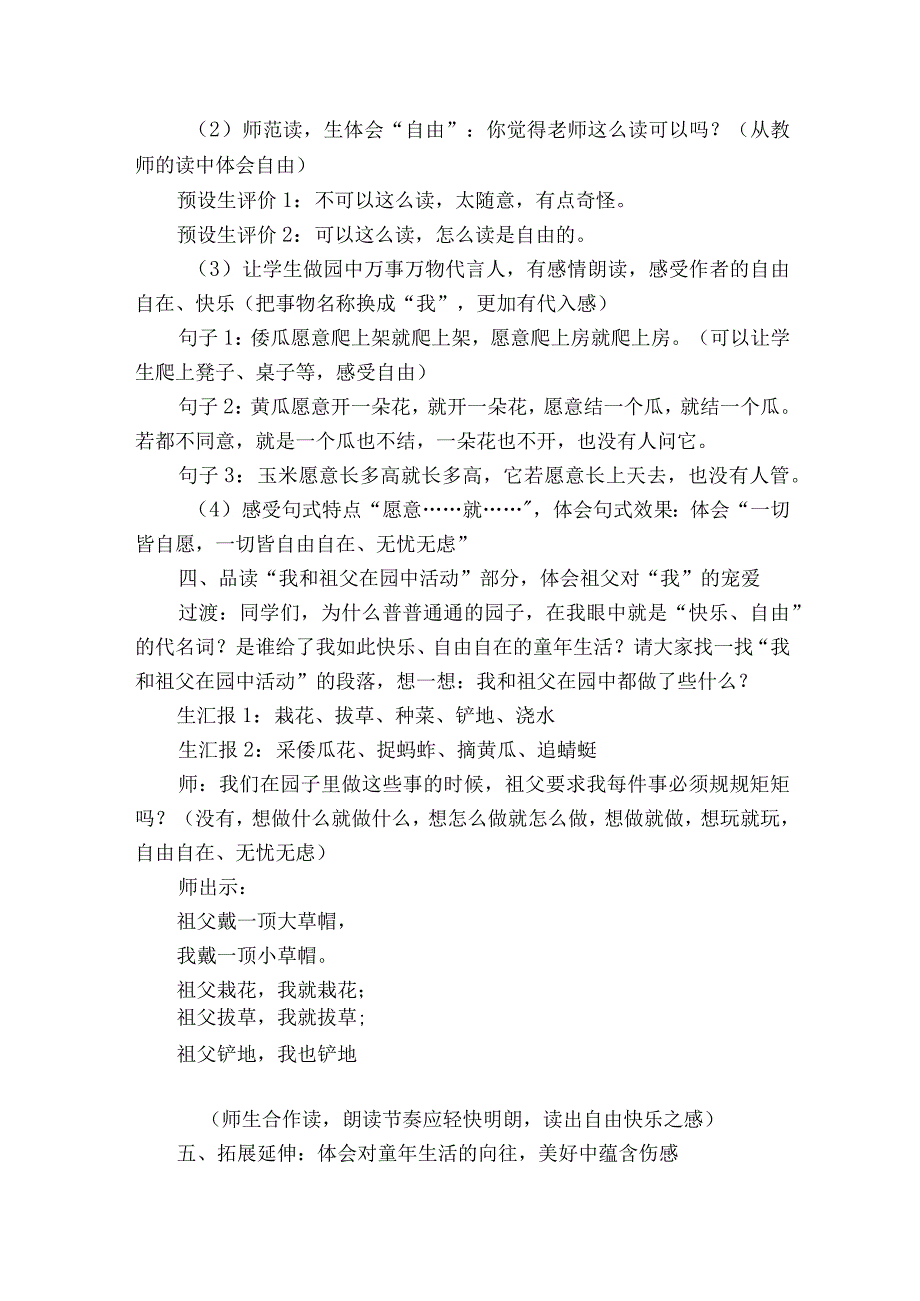 （2）师范读，生体会“自由”：你觉得老师这么读可以吗？（从教
师的读中体会自由）
预设生评价 1：不可以这么读，太随意，有点奇怪。
预设生评价 2：可以这么读，怎么读是自由的。
（3）让学生做园中万事万物代言人，有感情朗读，感受作者的自由
自在、快乐（把事物名称换成“我”，更加有代入感）
句子 1：倭瓜愿意爬上架就爬上架，愿意爬上房就爬上房。（可以让学
生爬上凳子、桌子等，感受自由）
句子 2：黄瓜愿意开一朵花，就开一朵花，愿意结一个瓜，就结一个瓜。
若都不同意，就是一个瓜也不结，一朵花也不开，也没有人问它。
句子 3：玉米愿意长多高就长多高，它若愿意长上天去，也没有人管。
（4）感受句式特点“愿意……就……"，体会句式效果：体会“一切
皆自愿，一切皆自由自在、无忧无虑”
四、品读“我和祖父在园中活动”部分，体会祖父对“我”的宠爱
过渡：同学们，为什么普普通通的园子，在我眼中就是“快乐、自由”
的代名词？是谁给了我如此快乐、自由自在的童年生活？请大家找一找“我
和祖父在园中活动”的段落，想一想：我和祖父在园中都做了些什么？
生汇报 1：栽花、拔草、种菜、铲地、浇水
生汇报 2：采倭瓜花、捉蚂蚱、摘黄瓜、追蜻蜓
师：我们在园子里做这些事的时候，祖父要求我每件事必须规规矩矩
吗？（没有，想做什么就做什么，想怎么做就怎么做，想做就做，想玩就玩，
自由自在、无忧无虑）
师出示：
祖父戴一顶大草帽，
我戴一顶小草帽。
祖父栽花，我就栽花；
祖父拔草，我就拔草；
祖父铲地，我也铲地
（师生合作读，朗读节奏应轻快明朗，读出自由快乐之感）
五、拓展延伸：体会对童年生活的向往，美好中蕴含伤感